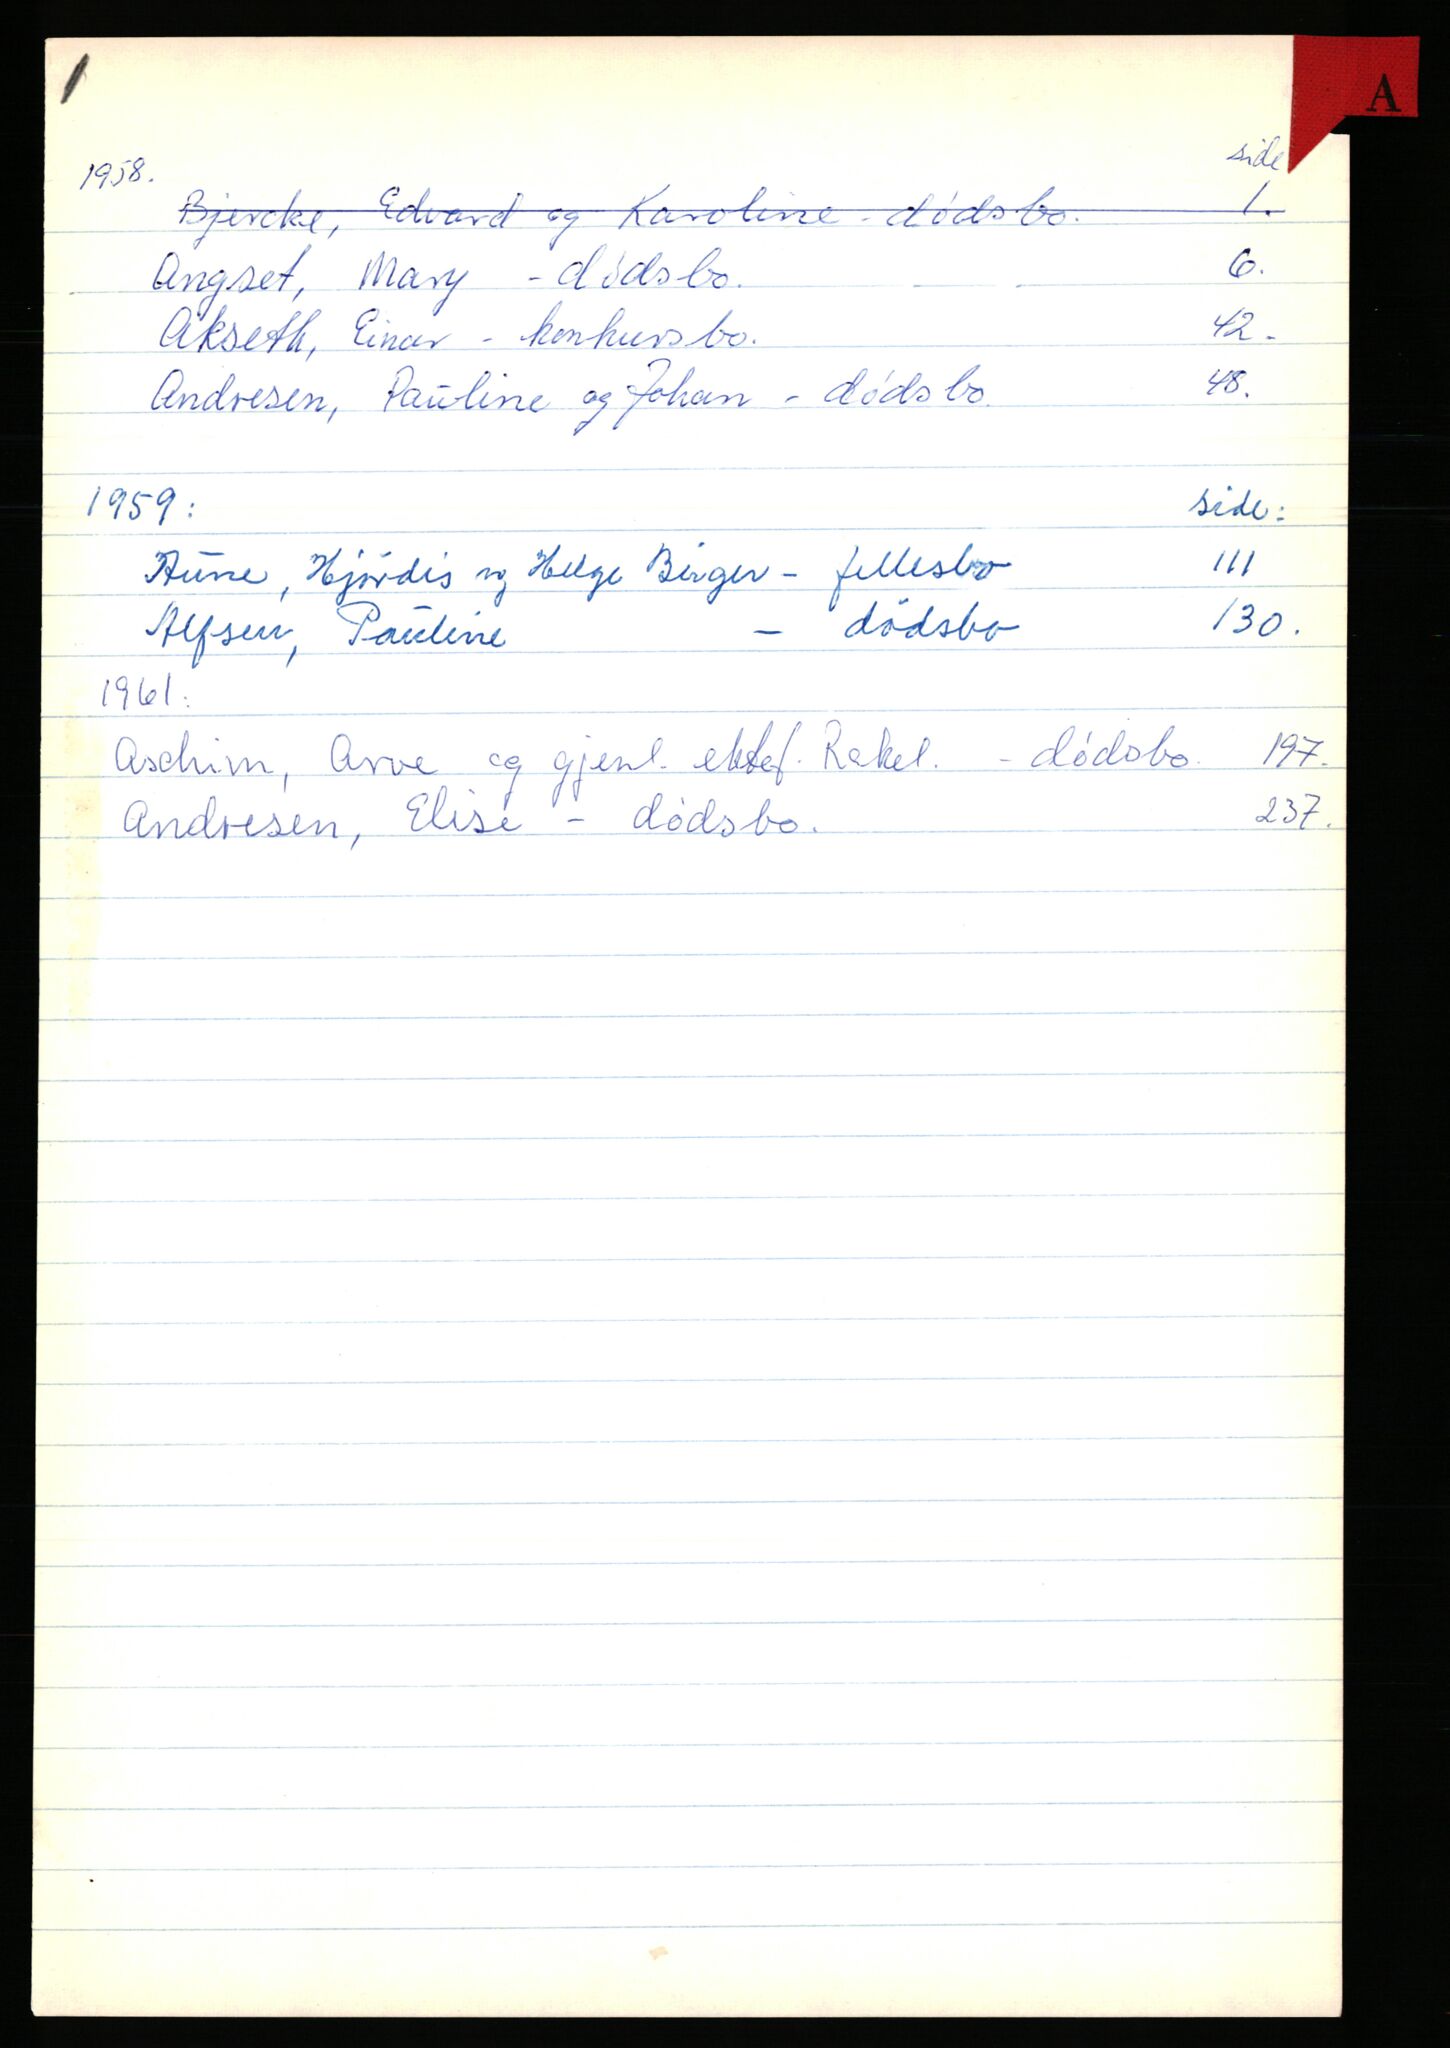 A
1958. side
Bjercke, Edvard og Karoline - dødsbo. 1.
Angset, Mary - dødsbo. 6.
Akseth, Einar - konkursbo. 42.
Andresen, Pauline og Johan - dødsbo. 48.
1959: side:
Aune, Hjørdis og Helge Birger - fellesbo 111
Alfsen, Pauline - dødsbo 130.
1961:
Aschim, Arve og gjenl. ektef. Rakel. - dødsbo. 197.
Andresen, Elise - dødsbo. 237.